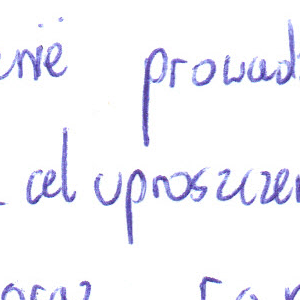 enie prowadz
cel uproszczen
oraz